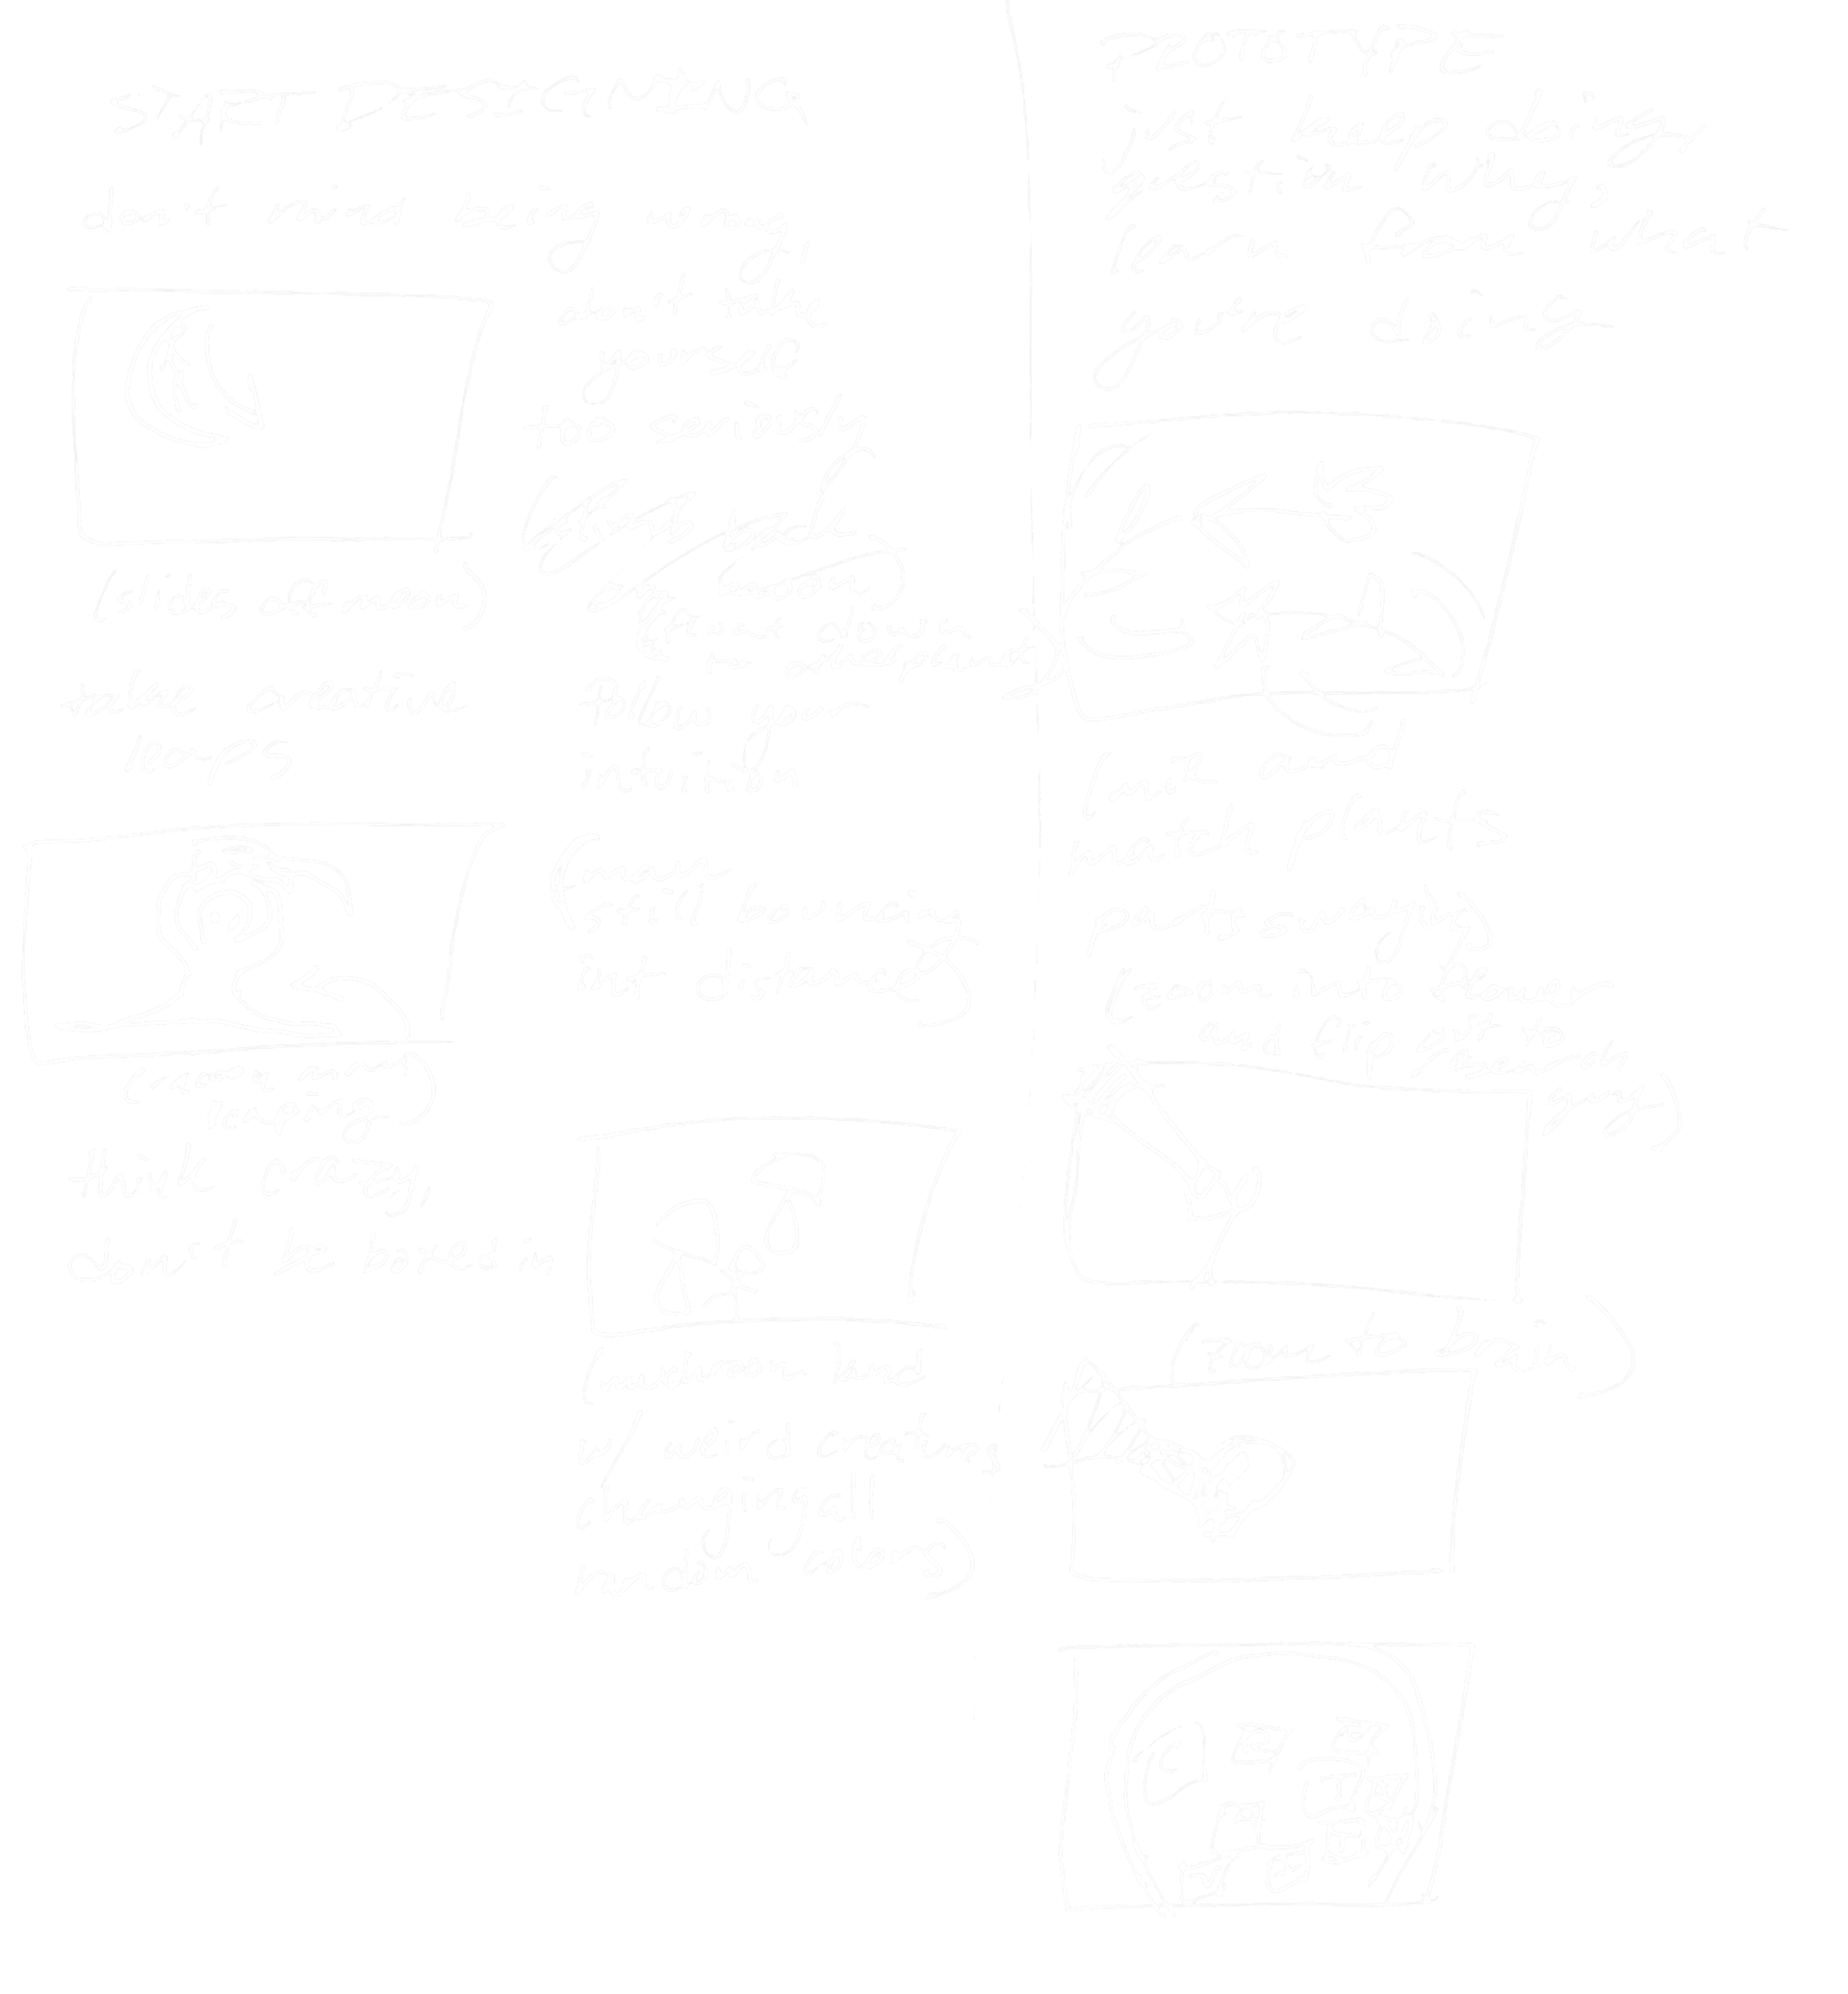 START DESIGNING
don't mind being wrong,
don't take
yourself
too seriously
back
on moon)
(float down
to
(slides off moon)
take creative
leaps
follow your
intuition
(man
still bouncing
int distance)
leaping)
think crazy,
don't be boxed in
(mushroom land
w/ weird creatures
changing all
random colors)
PROTOTYPE
just keep doing,
question why,
learn from what
you're doing
(mix and
match plants
parts swaying)
(zoom into flower
and flip out to
research
guy)
(zoom to brain)